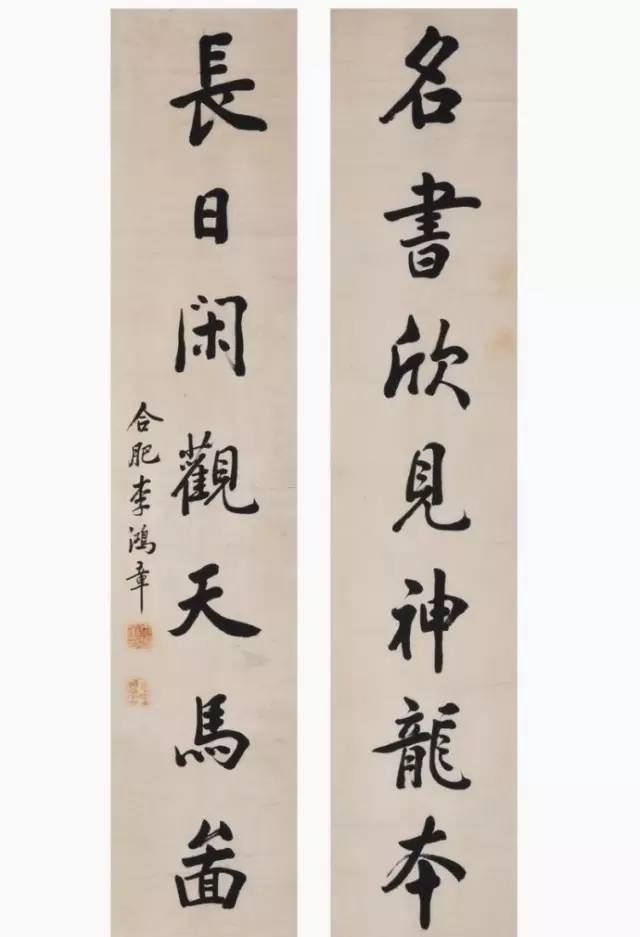 名書欣見神龍本
長日閑觀天馬啚
合肥李鴻章